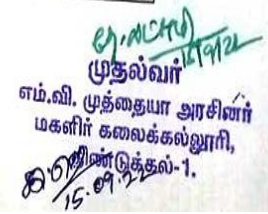 முதல்வர்
எம்.வி. முத்தையா அரசினர்
மகளிர் கலைக்கல்லூரி,
திண்டுக்கல்-1.
15.09.22